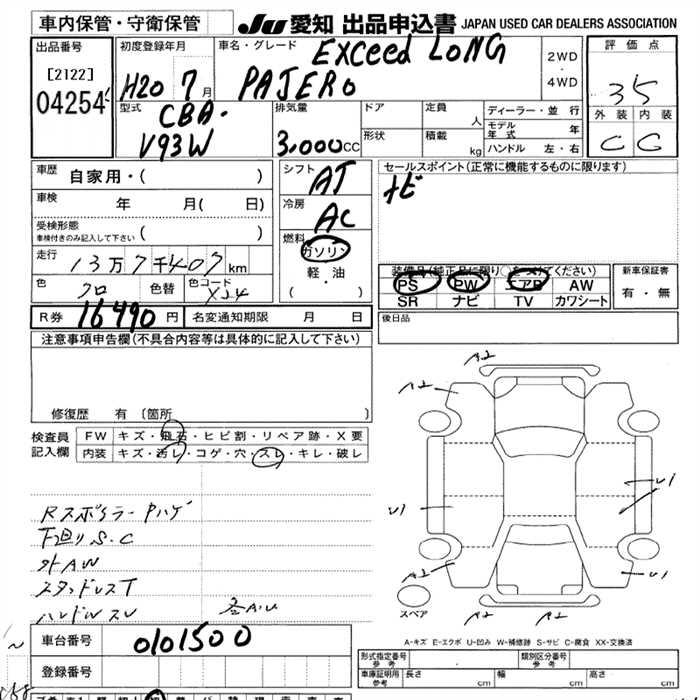 車内保管・守衛保管
JU 愛知 出品申込書 JAPAN USED CAR DEALERS ASSOCIATION
出品番号
[2122]
04254
初度登録年月
H20 7 月
車名・グレード
EXCeed LONG
PAJERO
2WD
・
4WD
評価点
35
外装 内装
C C
型式
CBA-
V93W
排気量
3,000cc
ドア
形状
定員 人
積載 kg
ディーラー・並行
モデル年式 年
ハンドル 左・右
車歴 自家用・( )
車検 年 月( 日)
受検形態
車検付きのみ記入して下さい ( )
走行 13万7千407km
色 クロ 色替 色コード X24
R券 16490 円 名変通知期限 月 日
シフト AT
冷房 AC
燃料
ガソリン
軽・油
( ・ )
セールスポイント(正常に機能するものに限ります)
ナビ
装備品(純正品に限り○をつけてください)
PS PW エアB AW
SR ナビ TV カワシート
新車保証書
有・無
後日品
注意事項申告欄(不具合内容等は具体的に記入して下さい)
修復歴 有 [箇所 ]
検査員
記入欄
FW キズ・飛石・ヒビ割・リペア跡・X要
内装 キズ・汚レ・コゲ・穴・スレ・キレ・破レ
Rスポイラー Pハゲ
下廻りS.C
外AW
スタッドレスT
ハンドルスレ
車台番号 0101500
登録番号
A2
A2
A2
U1
U1
U1
A2
A2
A2
スペア
A-キズ E-エクボ U-凹み W-補修跡 S-サビ C-腐食 XX-交換済
形式指定番号
参考
類別区分番号
参考
車庫証明用
参考
長さ cm 幅 cm 高さ cm